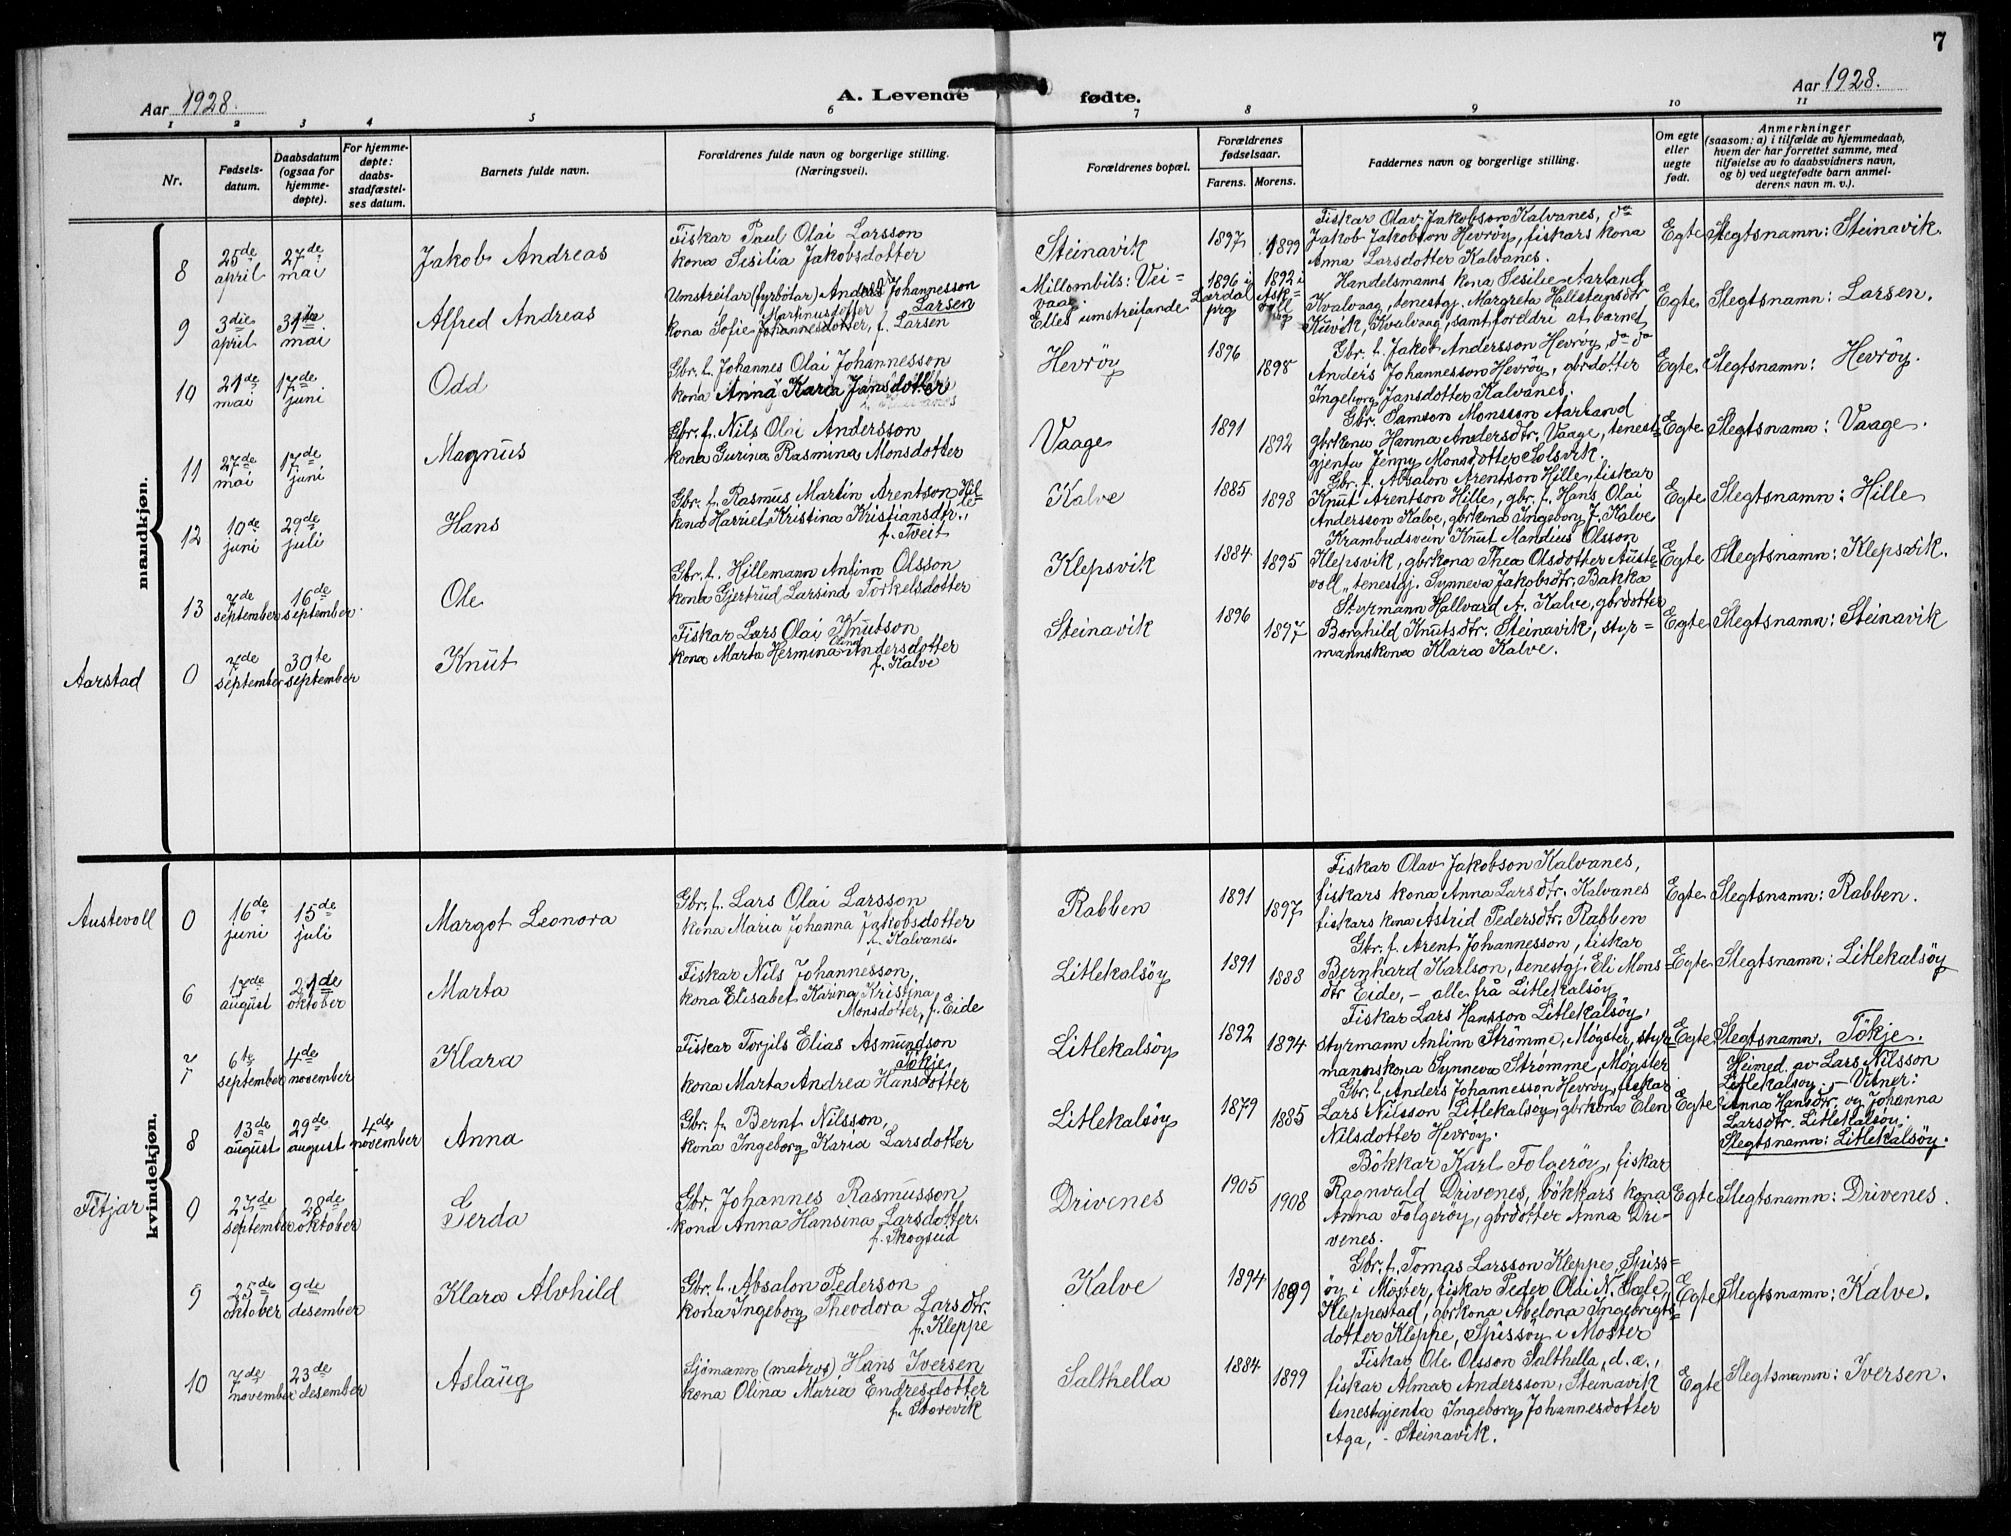 7
Aar 1928.
A. Levende fødte.
Aar 1928.
1 2 3 4 5 6 7 8 9 10 11
Nr.
Fødsels-
datum.
Daabsdatum
(ogsaa for
hjemme-
døpte).
For hjemme-
døpte:
daabs-
stadfæstel-
ses datum.
Barnets fulde navn.
Forældrenes fulde navn og borgerlige stilling.
(Næringsvei).
Forældrenes bopæl.
Forældrenes
fødselsaar.
Farens. Morens.
Faddernes navn og borgerlige stilling.
Om egte
eller
uegte
født.
Anmerkninger
(saasom: a) i tilfælde av hjemmedaab,
hvem der har forrettet samme, med
tilføielse av to daabsvidners navn,
og b) ved uegtefødte barn anmel-
derens navn m. v.).
mandkjøn.
8
25de
april
27de
mai
Jakob Andreas
Fiskar Paul Olai Larsson
kona Sesilia Jakobsdotter
Steinavik
1897 1899
Fiskar Olav Jakobson Kalvanes, do
Jakob Jakobson Hevrøy, fiskars kona
Anna Larsdotter Kalvanes.
Egte
Slegtsnamn: Steinavik.
9
3die
april
31te
mai.
Alfred Andreas
Umstreifar (fyrbøtar) Anders Johannesson
Larsen
Martinusdotter
kona Sofie Johannesdotter, f. Larsen
Millombils: Vei-
vaag.
Elles umstreifande
1896 i
Lærdal
prg
1892 i
Ask-
voll
prg
Handelsmanns kona Sesilie Aarland
Kvalvaag, tenestg. Margreta Hallsteinsdtr
Kuvik, Kvalvaag, samt foreldri at barnet
Egte
Slegtsnamn: Larsen.
10
21de
mai
17de
juni
Odd
Gbr. f. Johannes Olai Johannesson
kona Anna Karia Jansdotter
Hevrøy
1896 1898
Gbr. f. Jakob Andersson Hevrøy, do do
Anders Johannesson Hevrøy, gbrdotter
Ingeborg Jansdotter Kalvanes.
Egte
Slegtsnamn: Hevrøy.
11
27de
mai
17de
juni
Magnus
Gbr. f. Nils Olai Andersson
kona Gurina Rasmina Monsdotter
Vaage
1891 1892
Gbr. Samson Monsson Aarland
gbrkona Hanna Andersdtr. Vaage, tenest-
gjenta Jenny Monsdotter Solsvik.
Egte
Slegtsnamn: Vaage.
12
10de
juni
29de
juli
Hans
Gbr. f. Rasmus Martin Arentson Hil-
le
kona Harriet Kristina Kristiansdtr.,
f. Tveit
Kalve
1885 1898
Gbr. f. Absalon Arentson Hille, fiskar
Knut Arentson Hille, gbr. f. Hans Olai
Andersson Kalve, gbrkona Ingeborg J. Kalve
Egte
Slegtsnamn: Hille
13
7de
september
16de
september.
Ole
Gbr. f. Hillemann Anfinn Olsson
kona Gjertrud Larsina Torkelsdotter
Klepsvik
1884 1895
Krambudsvein Knut Mandius Olsson
Klepsvik, gbrkona Thea Olsdotter Auste-
voll, tenestgj. Synneva Jakobsdtr. Bakka
Egte
Slegtsnamn: Klepsvik.
Aarstad
0
7de
september
30te
september
Knut
Fiskar Lars Olai Knutson
kona Marta Hermina Olina Andersdotter
f. Kalve
Steinavik
1896 1897
Styrmann Hallvard A. Kalve, gbrdotter
Borghild Knutsdtr. Steinavik, styr-
mannskona Klara Kalve.
Egte
Slegtsnamn: Steinavik
kvindekjøn.
Austevoll
0
16de
juni
15de
juli
Margot Leonora
Gbr. f. Lars Olai Larsson
kona Maria Johanna Jakobsdotter
f. Kalvanes.
Rabben
1891 1897
Fiskar Olav Jakobson Kalvanes,
fiskars kona Anna Larsdtr. Kalvanes
fiskars kona Astrid Pedersdtr. Rabben
Egte
Slegtsnamn: Rabben.
6
17de
august
21de
oktober
Marta
Fiskar Nils Johannesson,
kona Elisabet Karina Kristina
Monsdotter, f. Eide
Litlekalsøy
1891 1888
Gbr. f. Arent Johannesson, fiskar
Bernhard Karlson, tenestgj. Eli Mons-
dtr Eide, - alle frå Litlekalsøy
Egte
Slegtsnamn: Litlekalsøy
7
6te
september
4de
november
Klara
Fiskar Torjils Elias Asmundson
Tøkje
kona Marta Andrea Hansdotter
Litlekalsøy
1892 1894
Fiskar Lars Hansson Litlekalsøy,
styrmann Anfinn Strømme, Møgster, styr-
mannskona Synneva Strømme, Møgster
Egte
Slegtsnamn. Tøkje.
8
13de
august
29de
august
4de
november
Anna
Gbr. f. Bernt Nilsson,
kona Ingeborg Karia Larsdotter
Litlekalsøy
1879 1885
Gbr. f. Anders Johannesson Hevrøy, fiskar
Lars Nilsson Litlekalsøy, gbrkona Elen
Nilsdotter Hevrøy.
Egte
Heimed. av Lars Nilsson
Litlekalsøy. - Vitner:
Anna Hansdtr. og Johanna
Larsdtr. Litlekalsøy.
Slegtsnamn: Litlekalsøy.
Fitjar
0
27de
september
28de
oktober
Gerda
Gbr. Johannes Rasmusson
kona Anna Hansina Larsdotter.
f. Skogseid
Drivenes
1905 1908
Bøkkar Karl Folgerøy, fiskar
Ragnvald Drivenes, bøkkars kona
Anna Folgerøy, gbrdotter Anna Dri-
venes.
Egte
Slegtsnamn: Drivenes.
9
25de
oktober
9de
desember
Klara Alvhild
Gbr. f. Absalon Pederson
kona Ingeborg Theodora Larsdtr.
f. Kleppe
Kalve
1894 1899
Gbr. f. Tomas Larsson Kleppe, Spiss-
øy i Moster, fiskar Peder Olai N. Sale,
Kleppestad, gbrkona Abelona Ingebrigts-
dotter Kleppe, Spissøy i Moster
Egte
Slegtsnamn: Kalve.
10
7de
november
23de
desember
Aslaug
Sjømann (matros) Hans Iversen
kona Olina Maria Endresdotter
f. Storevik
Salthella
1884 1899
Fiskar Ole Olsson Salthella, d.æ.,
fiskar Almar Andersson, Steinavik
tenestgjenta Ingeborg Johannesdotter
Aga, - Steinavik.
Egte
Slegtsnamn: Iversen.